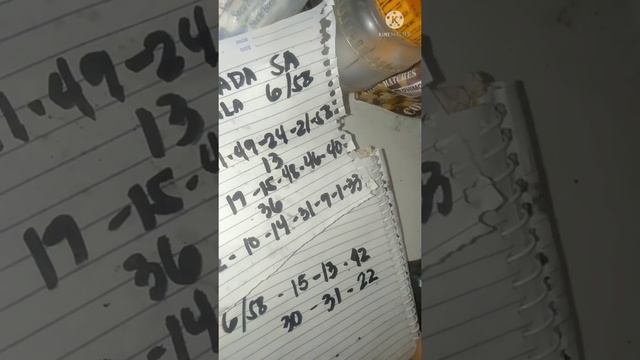 KINEMASTER
ADA SA
LA 6/58
49-24-21-58-
13
MATCHES
17-15-48-46-40-
36
- 10-14-31-9-1-33
6/58 - 15-13-42
30-31-22